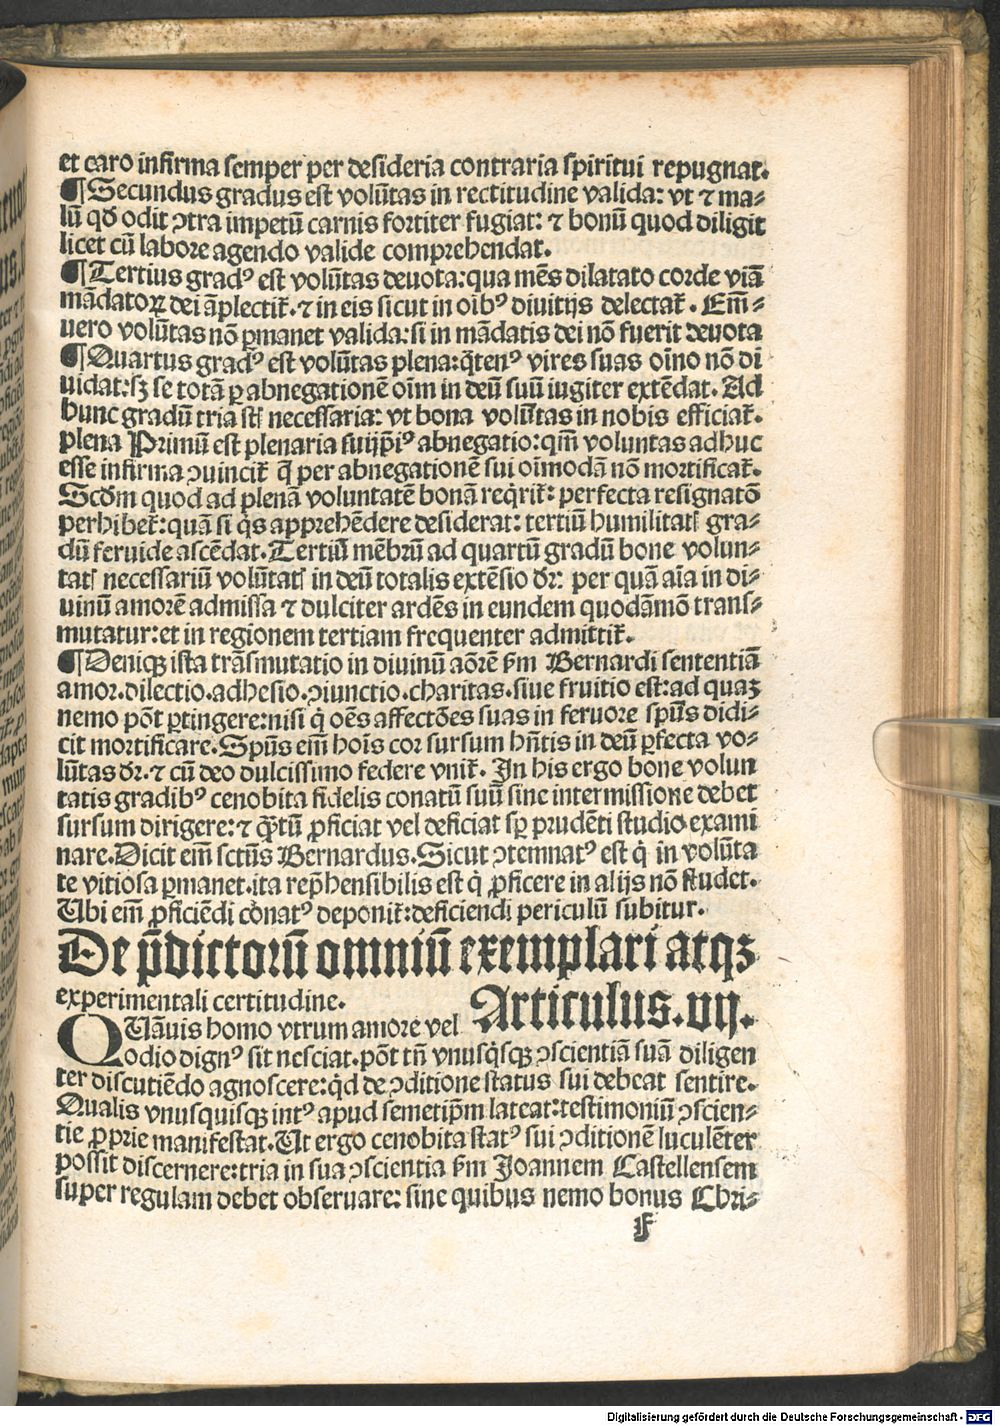 et caro infirma semper per desideria contraria spiritui repugnat.
¶Secundus gradus est volūtas in rectitudine valida: vt ⁊ ma-
lū qd̄ odit ↄtra impetū carnis fortiter fugiat: ⁊ bonū quod diligit
licet cū labore agendo valide comprehendat.
¶Tertius gradꝰ est volūtas deuota: qua mēs dilatato corde viā
mādatoꝝ dei āplectit᷑. ⁊ in eis sicut in oībꝰ diuitijs delectat᷑. Em̄-
uero volūtas nō ꝑmanet valida: si in mādatis dei nō fuerit deuota
¶Quartus gradꝰ est volūtas plena: q̄tenꝰ vires suas oīno nō di
uidat: sꝫ se totā ꝑ abnegationē oīm in deū suū iugiter extēdat. Ad
hunc gradū tria st̄ necessaria: vt bona volūtas in nobis efficiat᷑.
plena Primū est plenaria suijp̄i⁹ abnegatio: qm̄ voluntas adhuc
esse infirma ↄuincit᷑ q̄ per abnegationē sui oīmodā nō mortificat᷑.
Scd̄m quod ad plenā voluntatē bonā reqͥrit᷑: perfecta resignatō
perhibet᷑: quā si qͥs apprehēdere desiderat: tertiū humilitatꝭ gra-
dū feruide ascēdat. Tertiū mēbrū ad quartū gradū bone volun-
tatꝭ necessariū volūtatꝭ in deū totalis extēsio dr̄: per quā aīa in di-
uinū amorē admissa ⁊ dulciter ardēs in eundem quodāmō trans-
mutatur: et in regionem tertiam frequenter admittit᷑.
¶Deniqꝫ ista trāsmutatio in diuinū aōrē ẜm Bernardi sententiā
amor. dilectio. adhesio. ↄiunctio. charitas. siue fruitio est: ad quaꝫ
nemo pōt ꝑtingere: nisi qͥ oēs affectōes suas in feruore spūs didi-
cit mortificare. Spūs em̄ hoīs cor sursum hn̄tis in deū ꝑfecta vo-
lūtas dr̄. ⁊ cū deo dulcissimo federe vnit᷑. In his ergo bone volun
tatis gradibꝰ cenobita fidelis conatū suū sine intermissione debet
sursum dirigere: ⁊ qͣtū ꝓficiat vel deficiat sꝑ prudēti studio exami
nare. Dicit em̄ sctūs Bernardus. Sicut ↄtemnatꝰ est qͥ in volūta
te vitiosa ꝑmanet. ita rep̄hensibilis est qͥ ꝓficere in alijs nō studet.
Ubi em̄ ꝓficiēdi cōnatꝰ deponit᷑: deficiendi periculū subitur.
De p̄dictorū omniū exemplari atqꝫ
experimentali certitudine. Articulus. vij.
QUāuis homo vtrum amore vel
odio dignꝰ sit nesciat. pōt tn̄ vnusqͥsqꝫ ↄscientiā suā diligen
ter discutiēdo agnoscere: qͥd de ↄditione status sui debeat sentire.
Qualis vnusquisqꝫ intꝰ apud semetip̄m lateat: testimoniū ↄscien-
tie ꝓprie manifestat. Ut ergo cenobita statꝰ sui ↄditionē luculēter
possit discernere: tria in sua ↄscientia ẜm Joannem Castellensem
super regulam debet obseruare: sine quibus nemo bonus Chri-
F
Digitalisierung gefördert durch die Deutsche Forschungsgemeinschaft - DFG